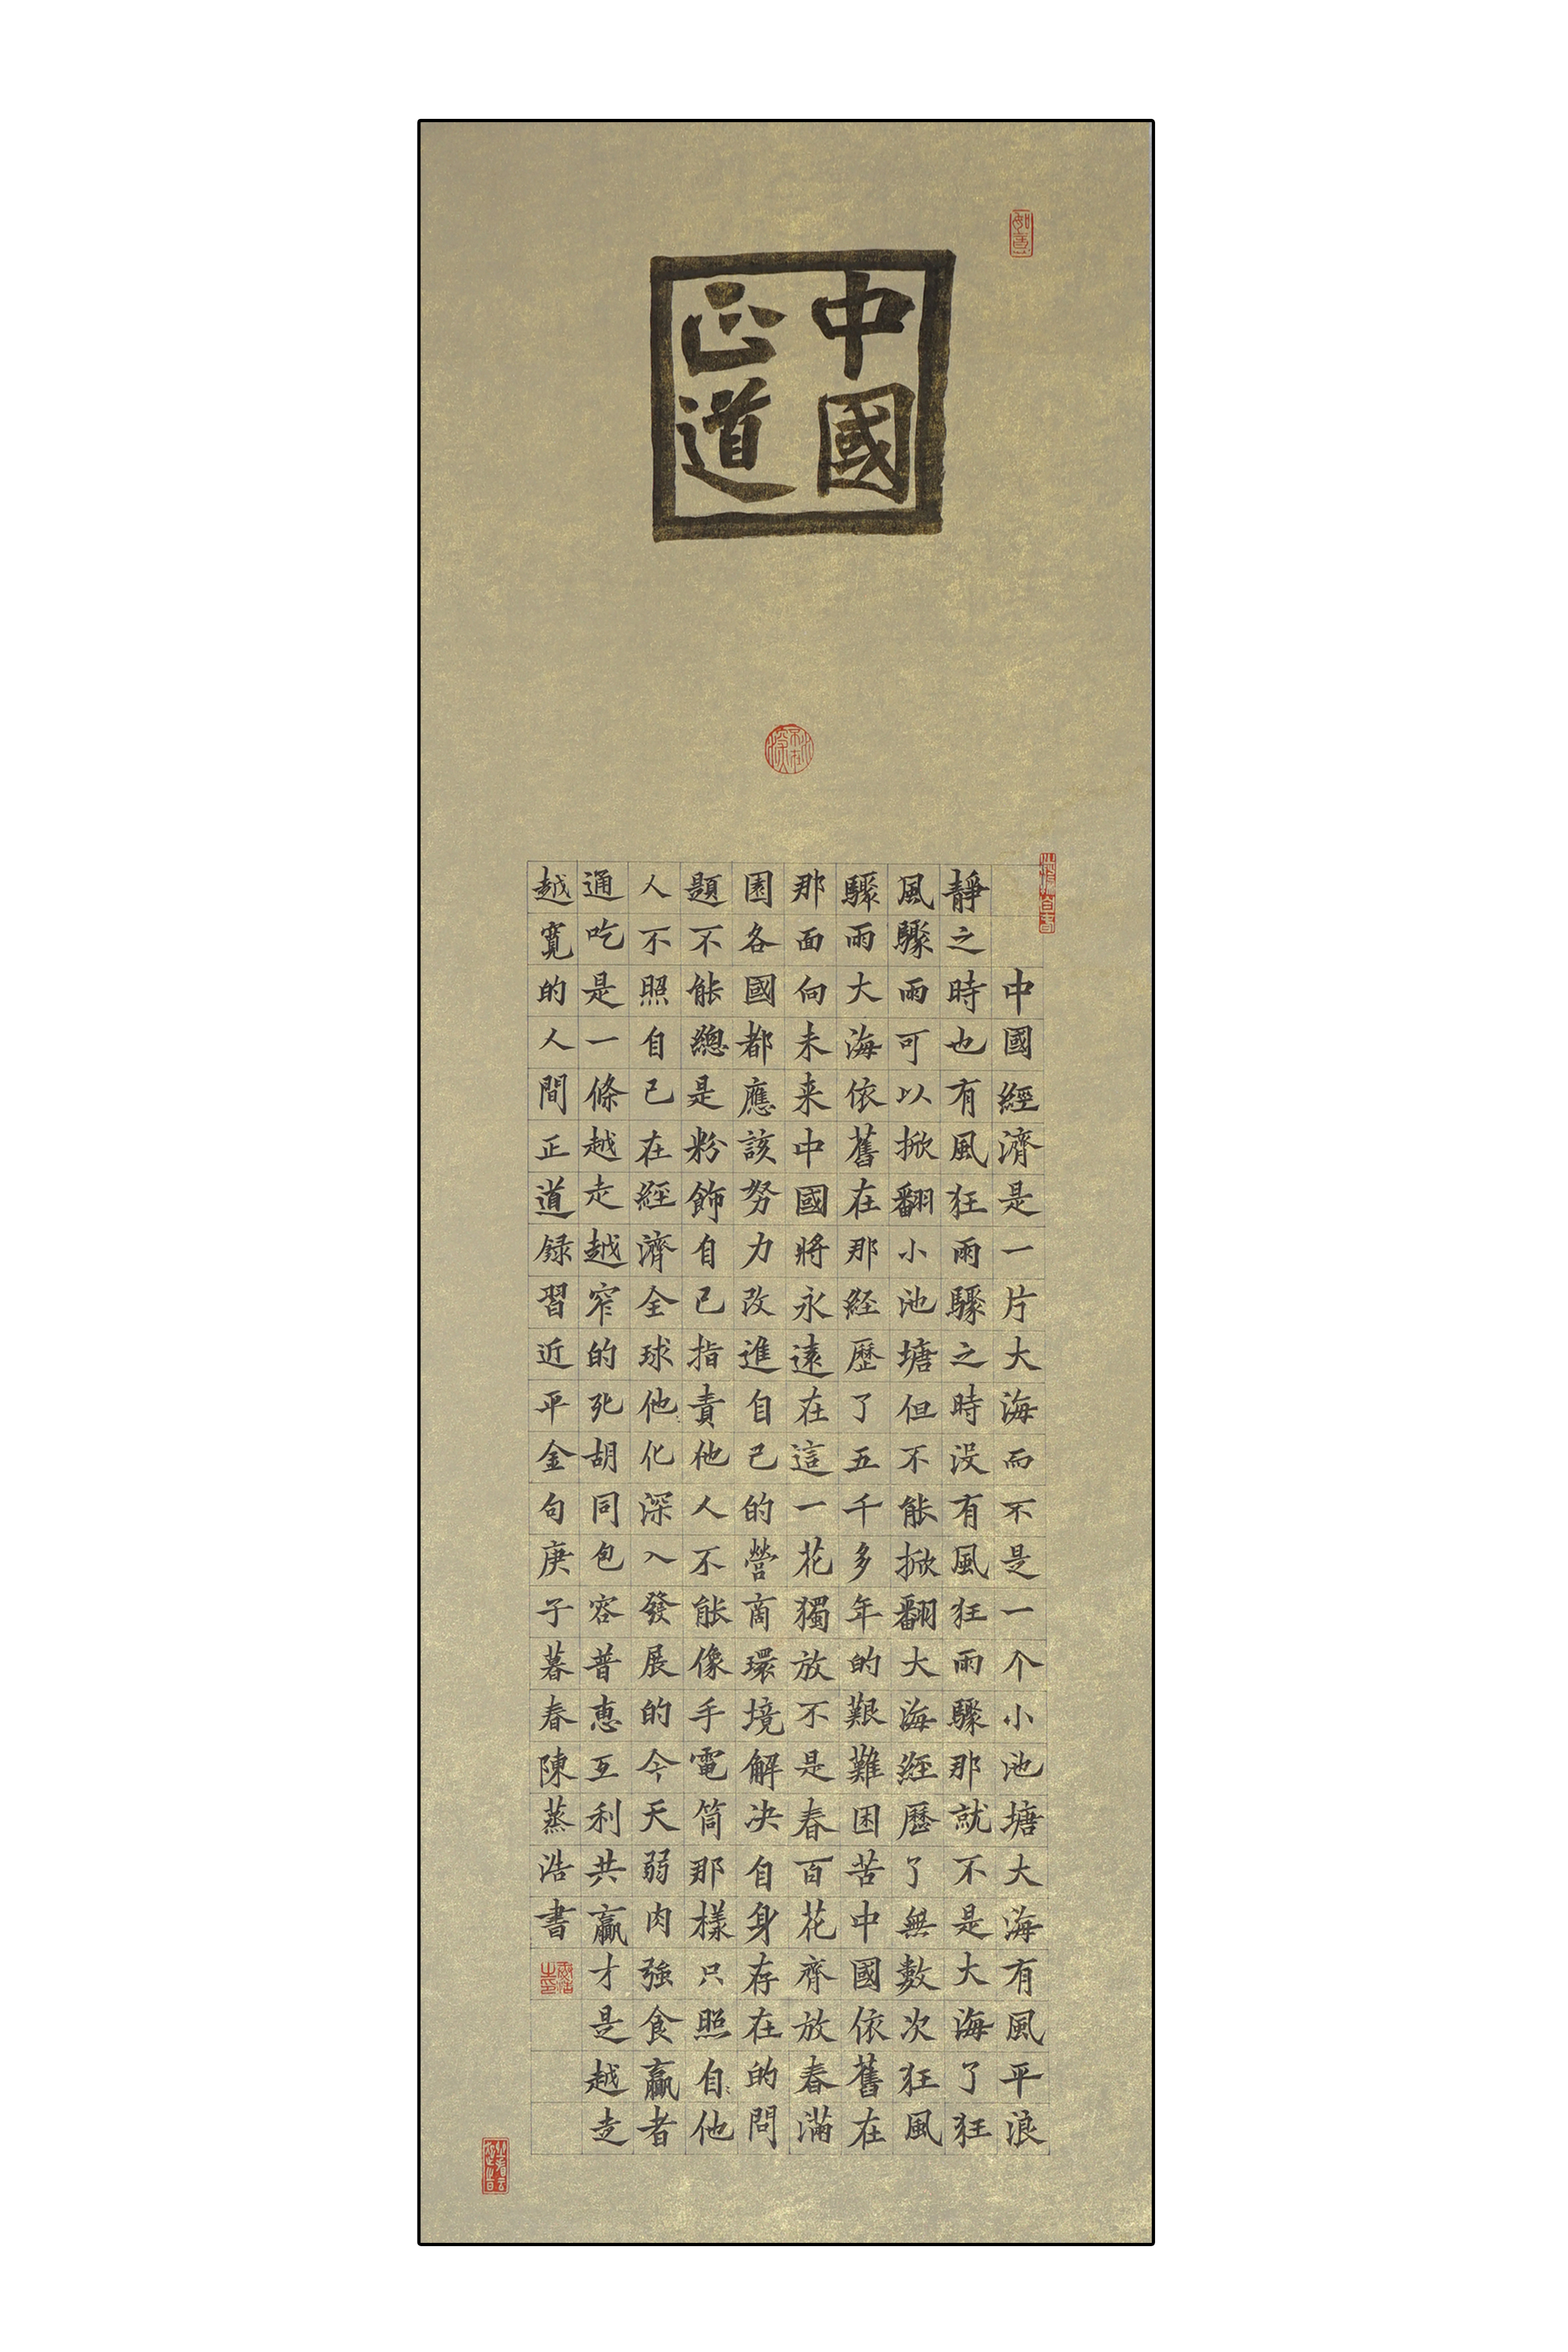 中國
正道
中國經濟是一片大海而不是一个小池塘大海有風平浪
靜之時也有風狂雨驟之時沒有風狂雨驟那就不是大海了狂
風驟雨可以掀翻小池塘但不能掀翻大海經歷了無數次狂風
驟雨大海依舊在那经歷了五千多年的艱難困苦中國依舊在
那面向未来中國將永遠在這一花獨放不是春百花齊放春滿
園各國都應該努力改進自己的營商環境解决自身存在的問
題不能總是粉飾自己指責他人不能像手電筒那樣只照自他
人不照自己在經濟全球他化深入發展的今天弱肉強食贏者
通吃是一條越走越窄的死胡同包容普惠互利共贏才是越走
越寬的人間正道録習近平金句庚子暮春陳蒸浩書